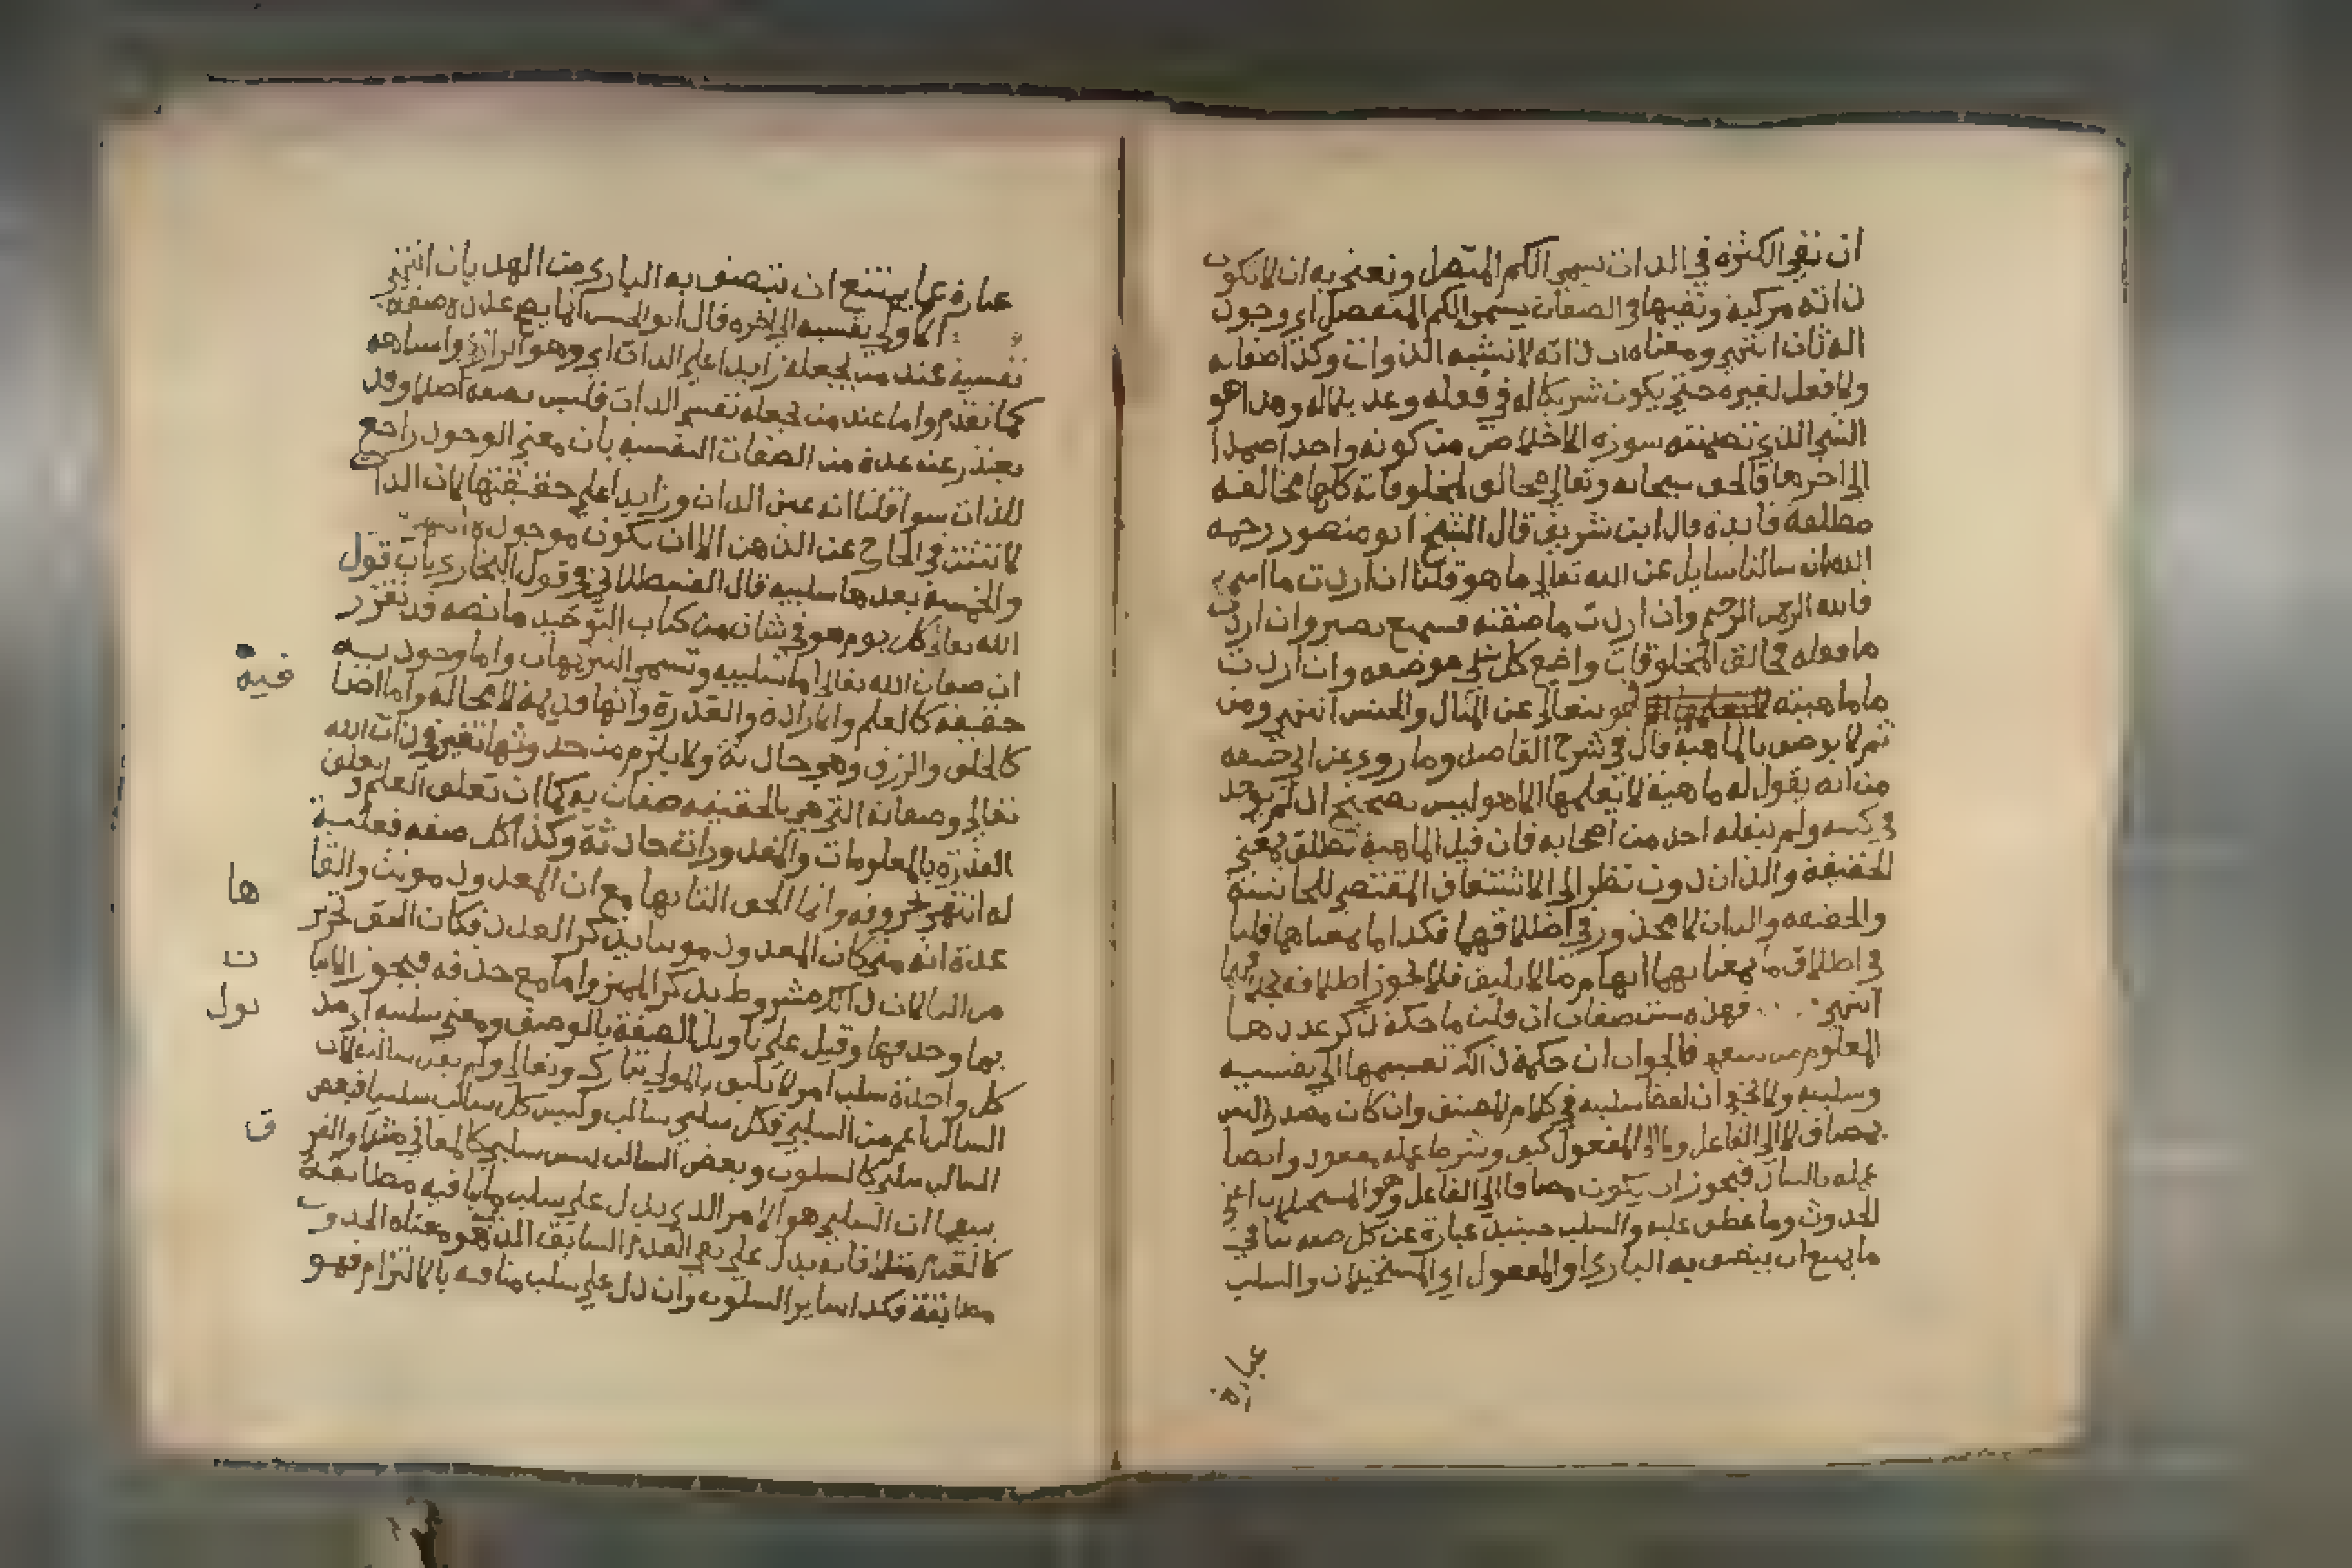 ان نفي الكثرة في الذات يسمى الكم المتصل ونعني به ان لا تكون
ذاته مركبة ونفيها في الصفات يسمى الكم المنفصل اي وجود
الذثان انتهى ومعناه ان ذاته لا تشبه الذوات وكذا صفاته
ولا فعل لغيره حتى يكون شريكا له في فعله وعديلا له وهذا هو
الشي الذي تضمنته سورة الاخلاص من كونه واحدا صمدا
الى اخرها فالحق سبحانه وتعالى مخالف لمخلوقاته كلها مخالفة
مطلقة فايدة قال ابن شريف قال الشيخ ابو منصور رحمه
الله ان سالنا سايل عن الله تعالى ما هو قلنا ان اردت ما اسمه
فالله الرحمن الرحيم وان اردت ما صفته فسميع بصير وان اردت
ما فعله فخالق المخلوقات واضع كل شي موضعه وان اردت
ما ماهيته فهو يتعالى عن المثال والجنس انتهى ومن
ثم لا يوصف بالماهية قال في شرح المقاصد وما روي عن ابي حنيفة
من انه يقول له ماهية لا يعلمها الا هو ليس بصحيح اذ لم يوجد
في كتبه ولم ينقله احد من اصحابه فان قيل الماهية تطلق بمعنى
الحقيقة والذات دون نظر الى الاشتقاق المقتضي للمجانسة
والحقيقة والذات لا محذور في اطلاقهما فكذا ما بمعناهما قلنا
في اطلاق ما بمعناهما ايهام ما لا يليق فلا يجوز اطلاقه
انتهى فهذه ست صفات ان قلت ما حكمة ذكر عددها
المعلوم من فالجواب ان حكمة ذلك تقسيمها الى نفسية
وسلبية ولا يخفى ان لفظ سلبية في كلام المصنف وان كان مصدر
يضاف الى الفاعل والى المفعول لكن وشرط عمله وايضا
عمله فيجوز ان يكون مضافا الى الفاعل وهو المستحيلات اعني
الحدوث وما عطف عليه والسلب حينئذ عبارة عن كل صفة تنافي
ما يمتنع ان يتصف به الباري او المفعول اي المستحيلات والسلب
عبارة
عبارة عما يمتنع ان يتصف به الباري من الهديان انتهى
الاولى نفسية الى اخره قال ابو الحسن انما يصح عدله صفة
نفسية عند من يجعله زايدا على الذات اي وهو الرازي واشباهه
كما تقدم واما عند من يجعله نفس الذات فليس بصفة اصلا وقد
يعتذر عن عده من الصفات النفسية بان معنى الوجود راجع
للذات سوا قلنا انه عين الذات وزايدا على حقيقتها لان الذات
لا تثبت في الخارج عن الذهن الا ان تكون موجودة انتهى
والخمسة بعدها سلبية قال القسطلاني في قول البخاري باب قول
الله تعالى كل يوم هو في شان من كتاب التوحيد ما نصه قد تقرر
ان صفات الله تعالى اما سلبية وتسمى التنزيهات واما وجودية
حقيقة كالعلم والارادة والقدرة وانها قديمة لا محالة واما اضا
فية
كالخلق والرزق وهي حادثة ولا يلزم من حدوثها تغير في ذات الله
تعالى وصفاته التي هي بالحقيقة صفات له كما ان تعلق العلم وتعلق
القدرة بالمعلومات والمقدورات حادثة وكذا كل صفة فعلية
له انتهى بحروفه وانما الحق التا بها مع ان المعدود مونث والقا
عدة انه متى كان المعدود مونثا يذكر العدد فكان الحق تجريد
ها
من التا لان ذلك مشروط بذكر المميز واما مع حذفه فيجوز الاتيا
ت
بها وحدفها وقيل على تاويل الصفة بالوصف ومعنى سلبية ان مد
لول
كل واحدة سلب امر لا يليق بالمولى تبارك وتعالى ولم يقل سالبة لان
السالب اعم من السلبي فكل سلبي سالب وليس كل سالب سلبيا فبعض
السالب سلبي كالسلوب وبعض السالب ليس سلبي كالمعاني مثلا والفر
ق
بينهما ان السلبي هو الامر الذي يدل على سلب ما ينافيه مطابقة
كالقدم مثلا فانه يدل على نفي العدم السابق الذي هو معناه الحدوث
مطابقة فكذا ساير السلوب وان دل على سلب منافيه بالالتزام فهو